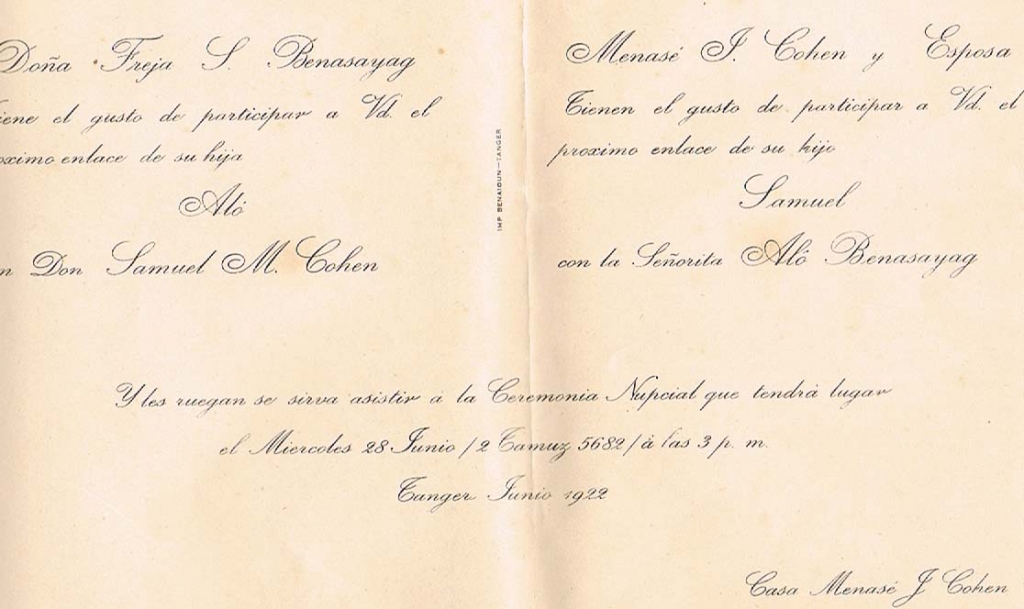 Doña Freja S. Benasayag
iene el gusto de participar a Vd. el
oximo enlace de su hija
Aló
n Don Samuel M. Cohen
IMP BENAIOUN—TANGER
Menasé J. Cohen y Esposa
Tienen el gusto de participar a Vd. el
proximo enlace de su hijo
Samuel
con la Señorita Aló Benasayag
Y les ruegan se sirva asistir á la Ceremonia Nupcial que tendrá lugar
el Miercoles 28 Junio / 2 Tamuz 5682 / à las 3 p. m.
Tanger Junio 1922
Casa Menasé J Cohen